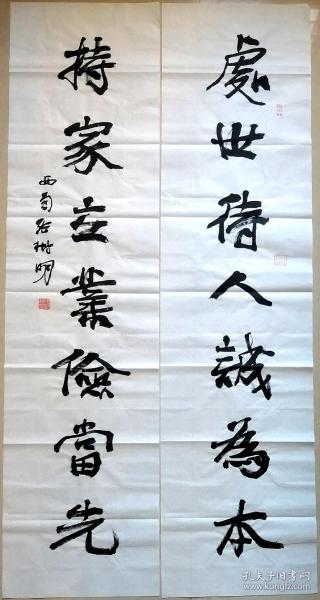 處世待人誠為本
持家立業儉當先
孔夫子旧书网